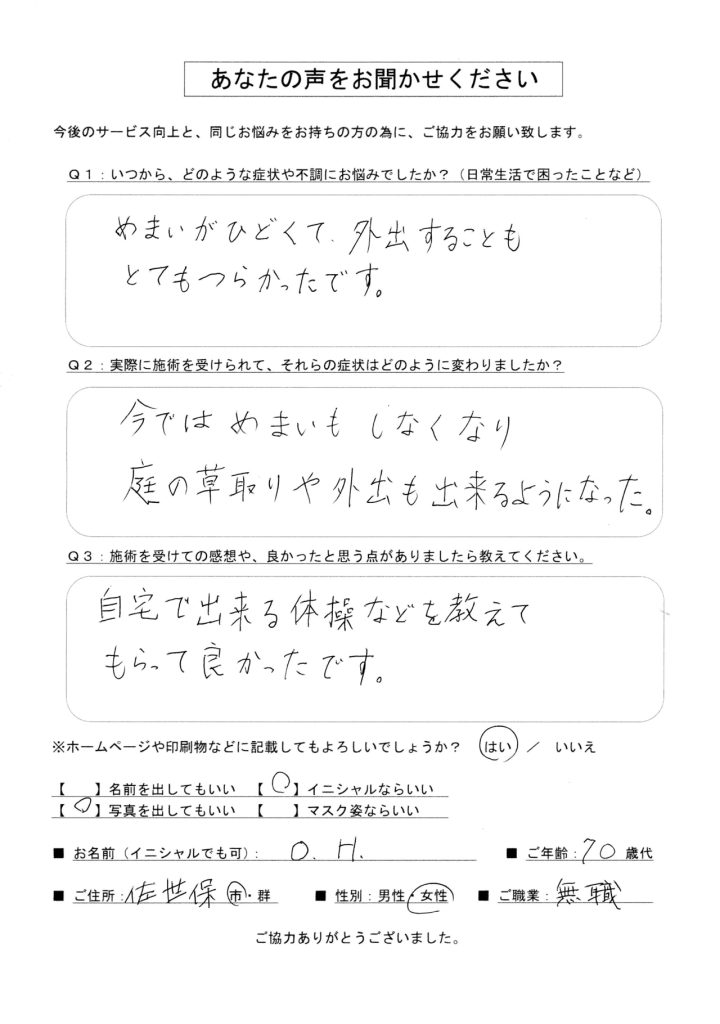 あなたの声をお聞かせください
今後のサービス向上と、同じお悩みをお持ちの方の為に、ご協力をお願い致します。
Q1:いつから、どのような症状や不調にお悩みでしたか?(日常生活で困ったことなど)
めまいがひどくて、外出することも
とてもつらかったです。
Q2:実際に施術を受けられて、それらの症状はどのように変わりましたか?
今では めまいも しなくなり
庭の草取りや外出も出来るようになった。
Q3:施術を受けての感想や、良かったと思う点がありましたら教えてください。
自宅で出来る体操などを教えて
もらって良かったです。
※ホームページや印刷物などに記載してもよろしいでしょうか? はい / いいえ
【 】名前を出してもいい 【○】イニシャルならいい
【○】写真を出してもいい 【 】マスク姿ならいい
■ お名前(イニシャルでも可): O. H. ■ ご年齢:70 歳代
■ ご住所:佐世保 市・群 ■ 性別:男性・女性 ■ ご職業:無職
ご協力ありがとうございました。